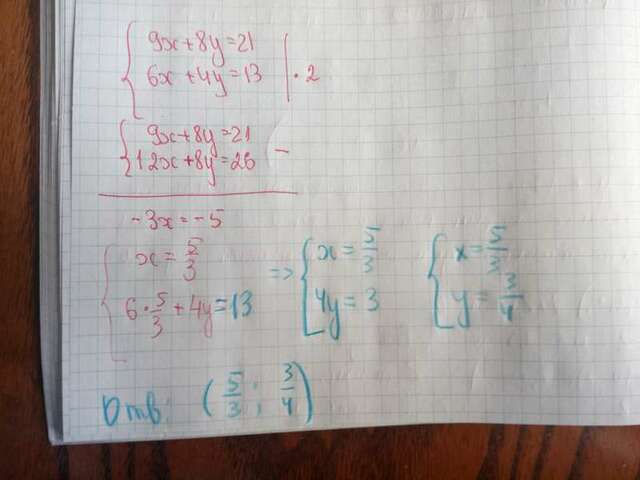 9x+8y=21
6x+4y=13 | · 2
9x+8y=21
12x+8y=26 −
-3x=-5
x=5/3 => x=5/3 x=5/3
6·5/3+4y=13 4y=3 y=3/4
Отв: (5/3; 3/4)